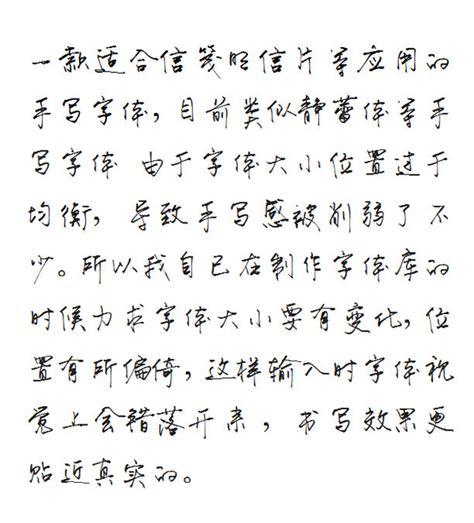 一款适合信笺明信片等应用的
手写字体，目前类似静蕾体等手
写字体 由于字体大小位置过于
均衡， 导致手写感被削弱了不
少。所以我自己在制作字体库的
时候力求字体大小要有变化，位
置有所偏倚，这样输入时字体视
觉上会错落开来，书写效果更
贴近真实的。